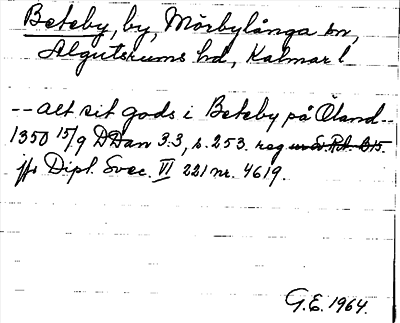 Beteby, by, Mörbylånga sn,
Algutsrums hd, Kalmar l
-- alt sit gods i Beteby på Öland --
1350 15/9 DDan 3.3, s. 253. reg
jfr Dipl. Svec. VI 221 nr. 4619.
G.E. 1964.